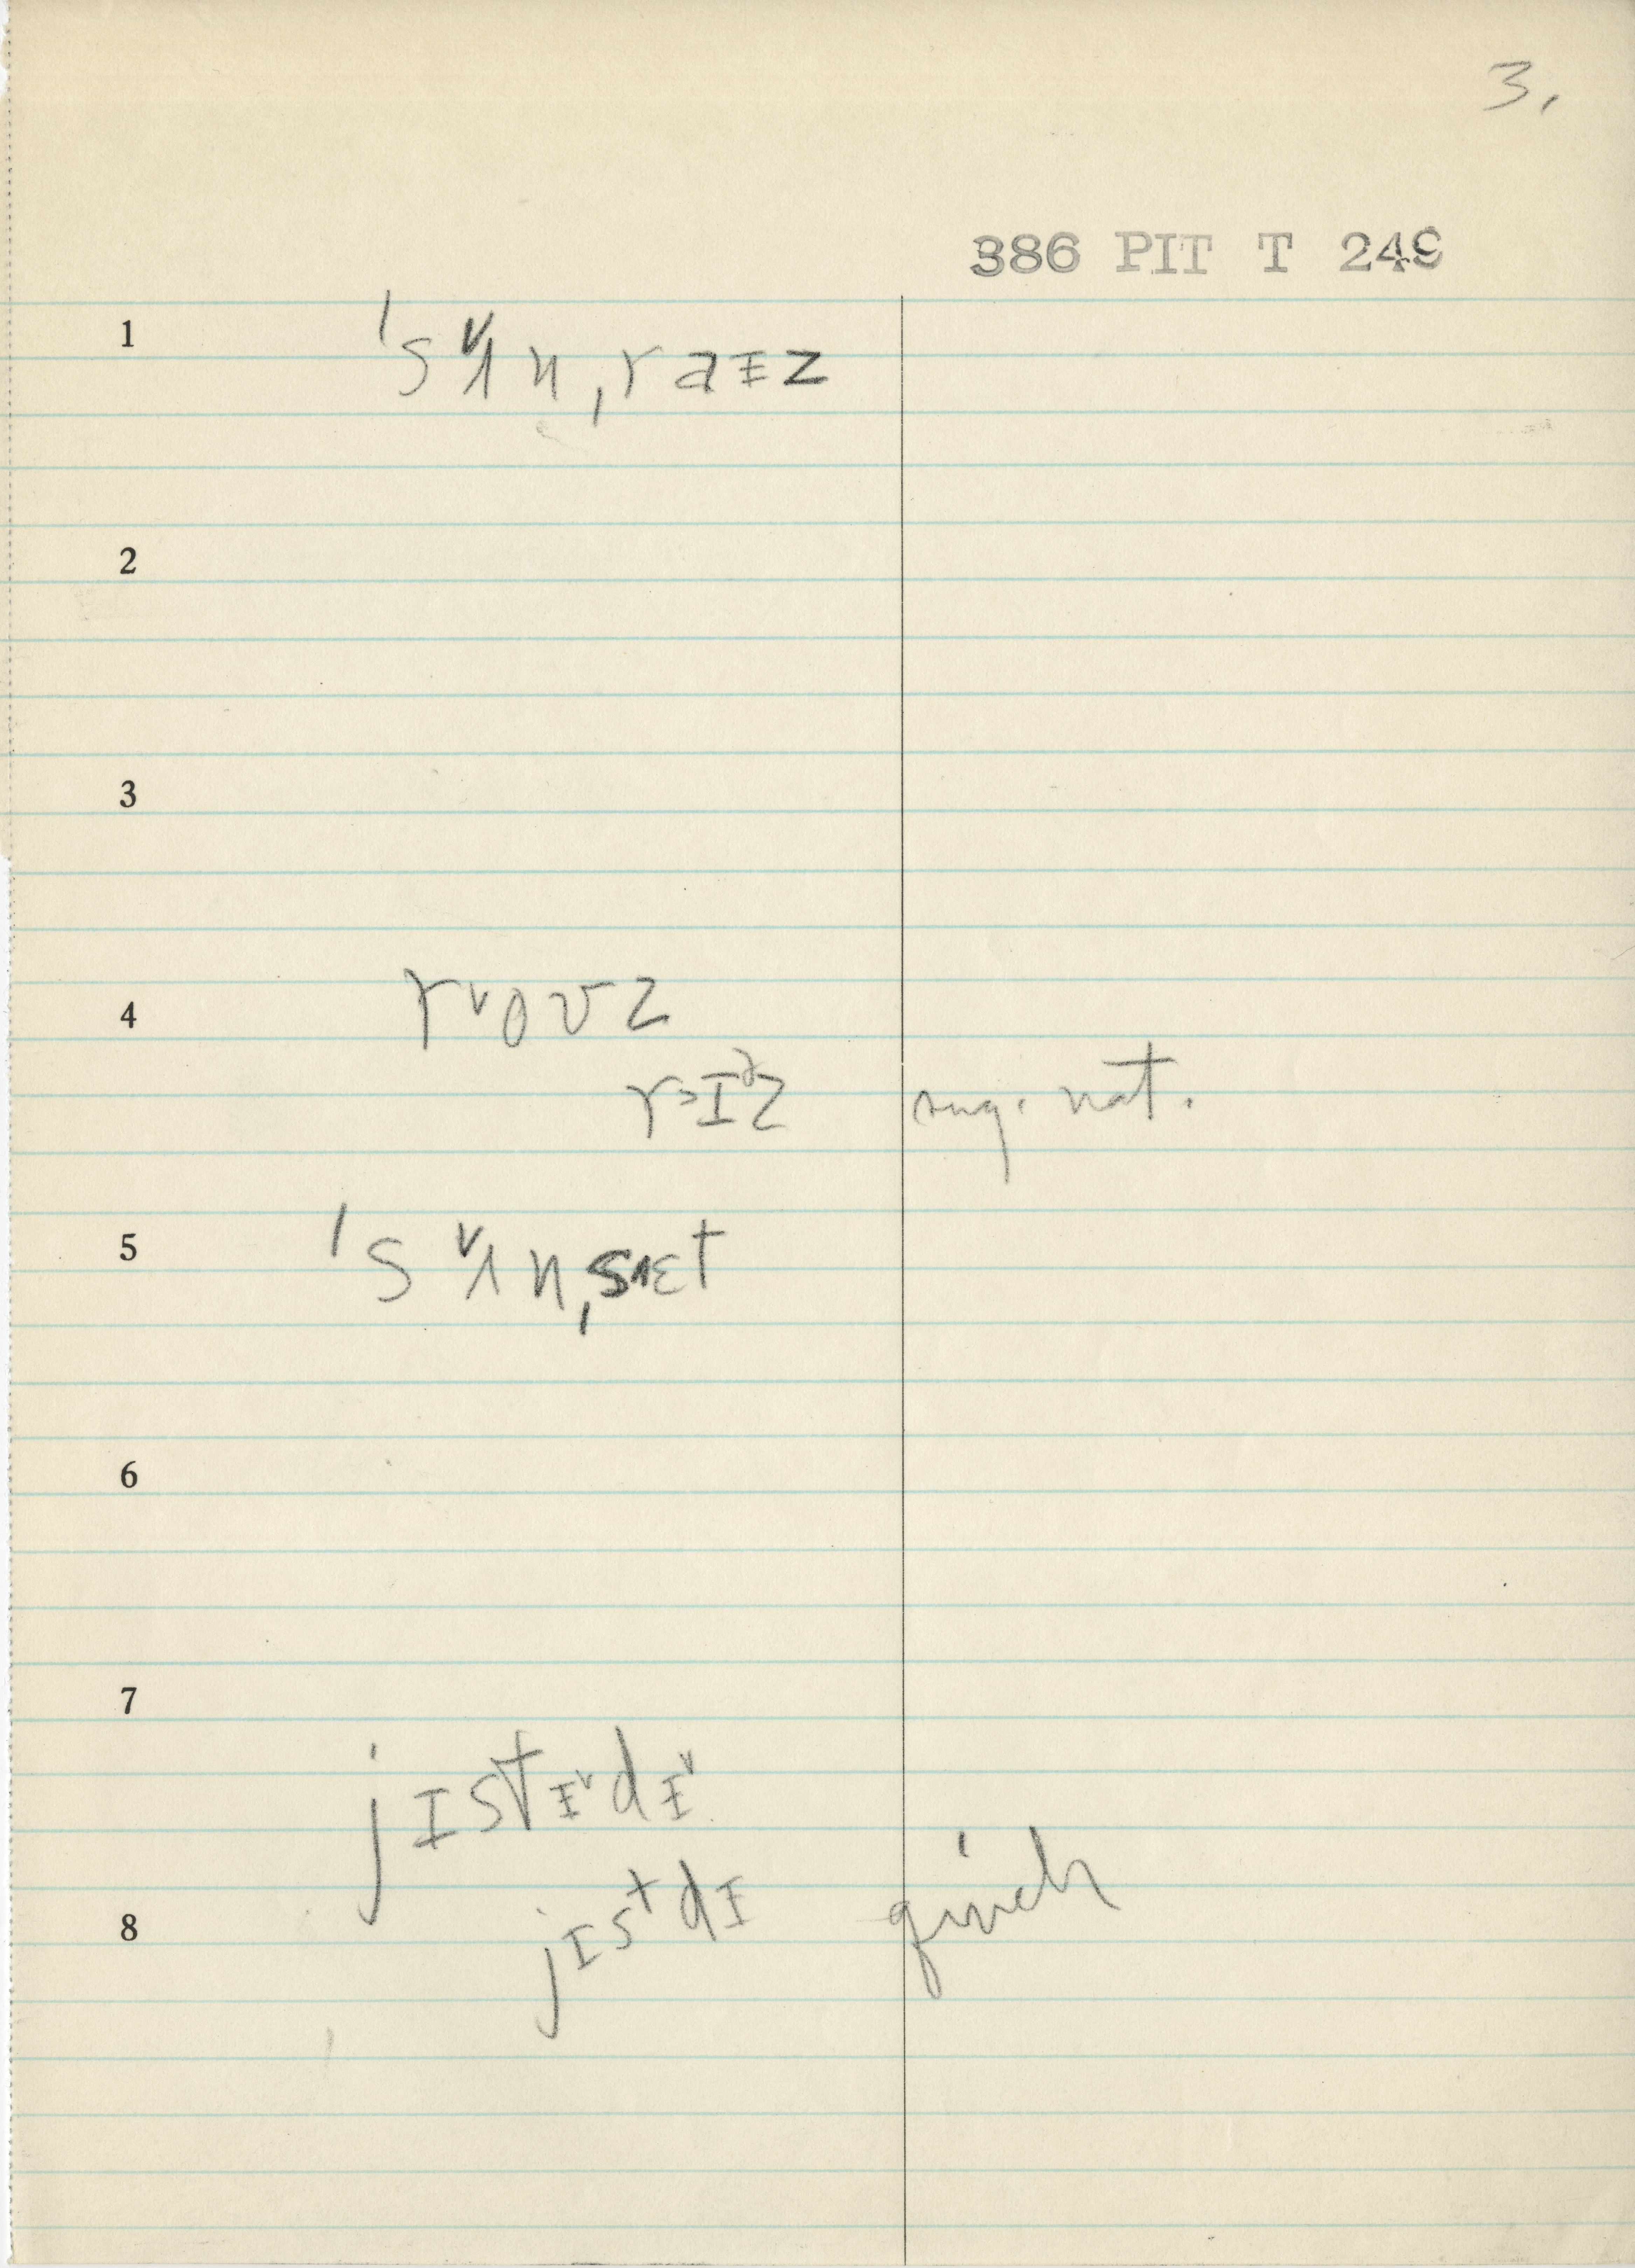 3.
386 PIT T 249
1 ˈsʌ˅n ˌraɪz
2
3
4 r˅oʊz
r>ɪᵊz sug. nat.
5 ˈsʌ˅n ˌs˄ɛt
6
7
jɪstɪ˅dɪ˅
8 jɪstdɪ quick